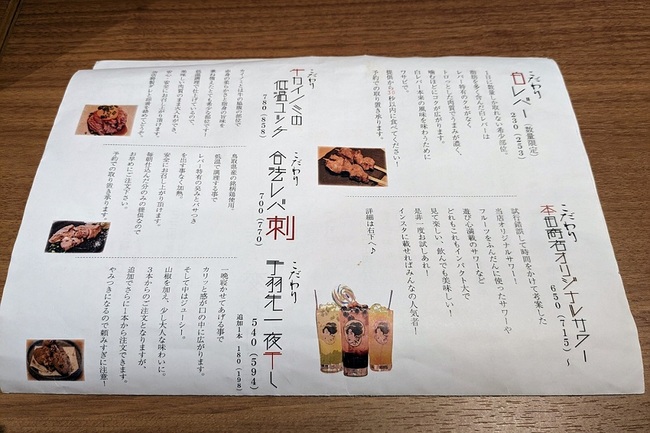 こだわり
白レバー
(数量限定)
230(253)
1日に数量しか取れない希少部位。
脂肪を多く含んだ白レバーは
レバー特有のクセがなく
トロッとした肉質でうまみが濃く、
噛むほどにコクが広がります。
白レバー本来の風味を味わうために
ワサビで。
提供から10秒以内に食べてください!
予約での取り置き承ります。
こだわり
本田商店オリジナルサワー
650(715)~
試行錯誤して時間をかけて考案した
当店オリジナルサワー!
フルーツをふんだんに使ったサワーや
遊び心満載のサワーなど
どれもこれもインパクト大で
見て楽しい、飲んでも美味しい!
是非一度お試しあれ!
インスタに載せればみんなの人気者!
詳細は右下へ
こだわり
低温ユッケ
780(858)
こだわり
合法レバ刺
700(770)
鳥取県産の銘柄鶏使用。
低温で調理する事で
レバー特有の臭みとパサつき
を出す事なく加熱。
安全にお召し上がり頂けます。
毎朝仕込んだ分のみの提供なので
お早めにご注文下さい。
予約での取り置き承ります。
こだわり
手羽先一夜干し
540(594)
追加1本 180(198)
一晩寝かせてあげる事で
カリッと感が口の中に広がります。
そして中はジューシー。
山椒を加え、少し大人な味わいに。
3本からのご注文となりますが、
追加でさらに1本から注文できます。
やみつきになるので頼みすぎに注意!